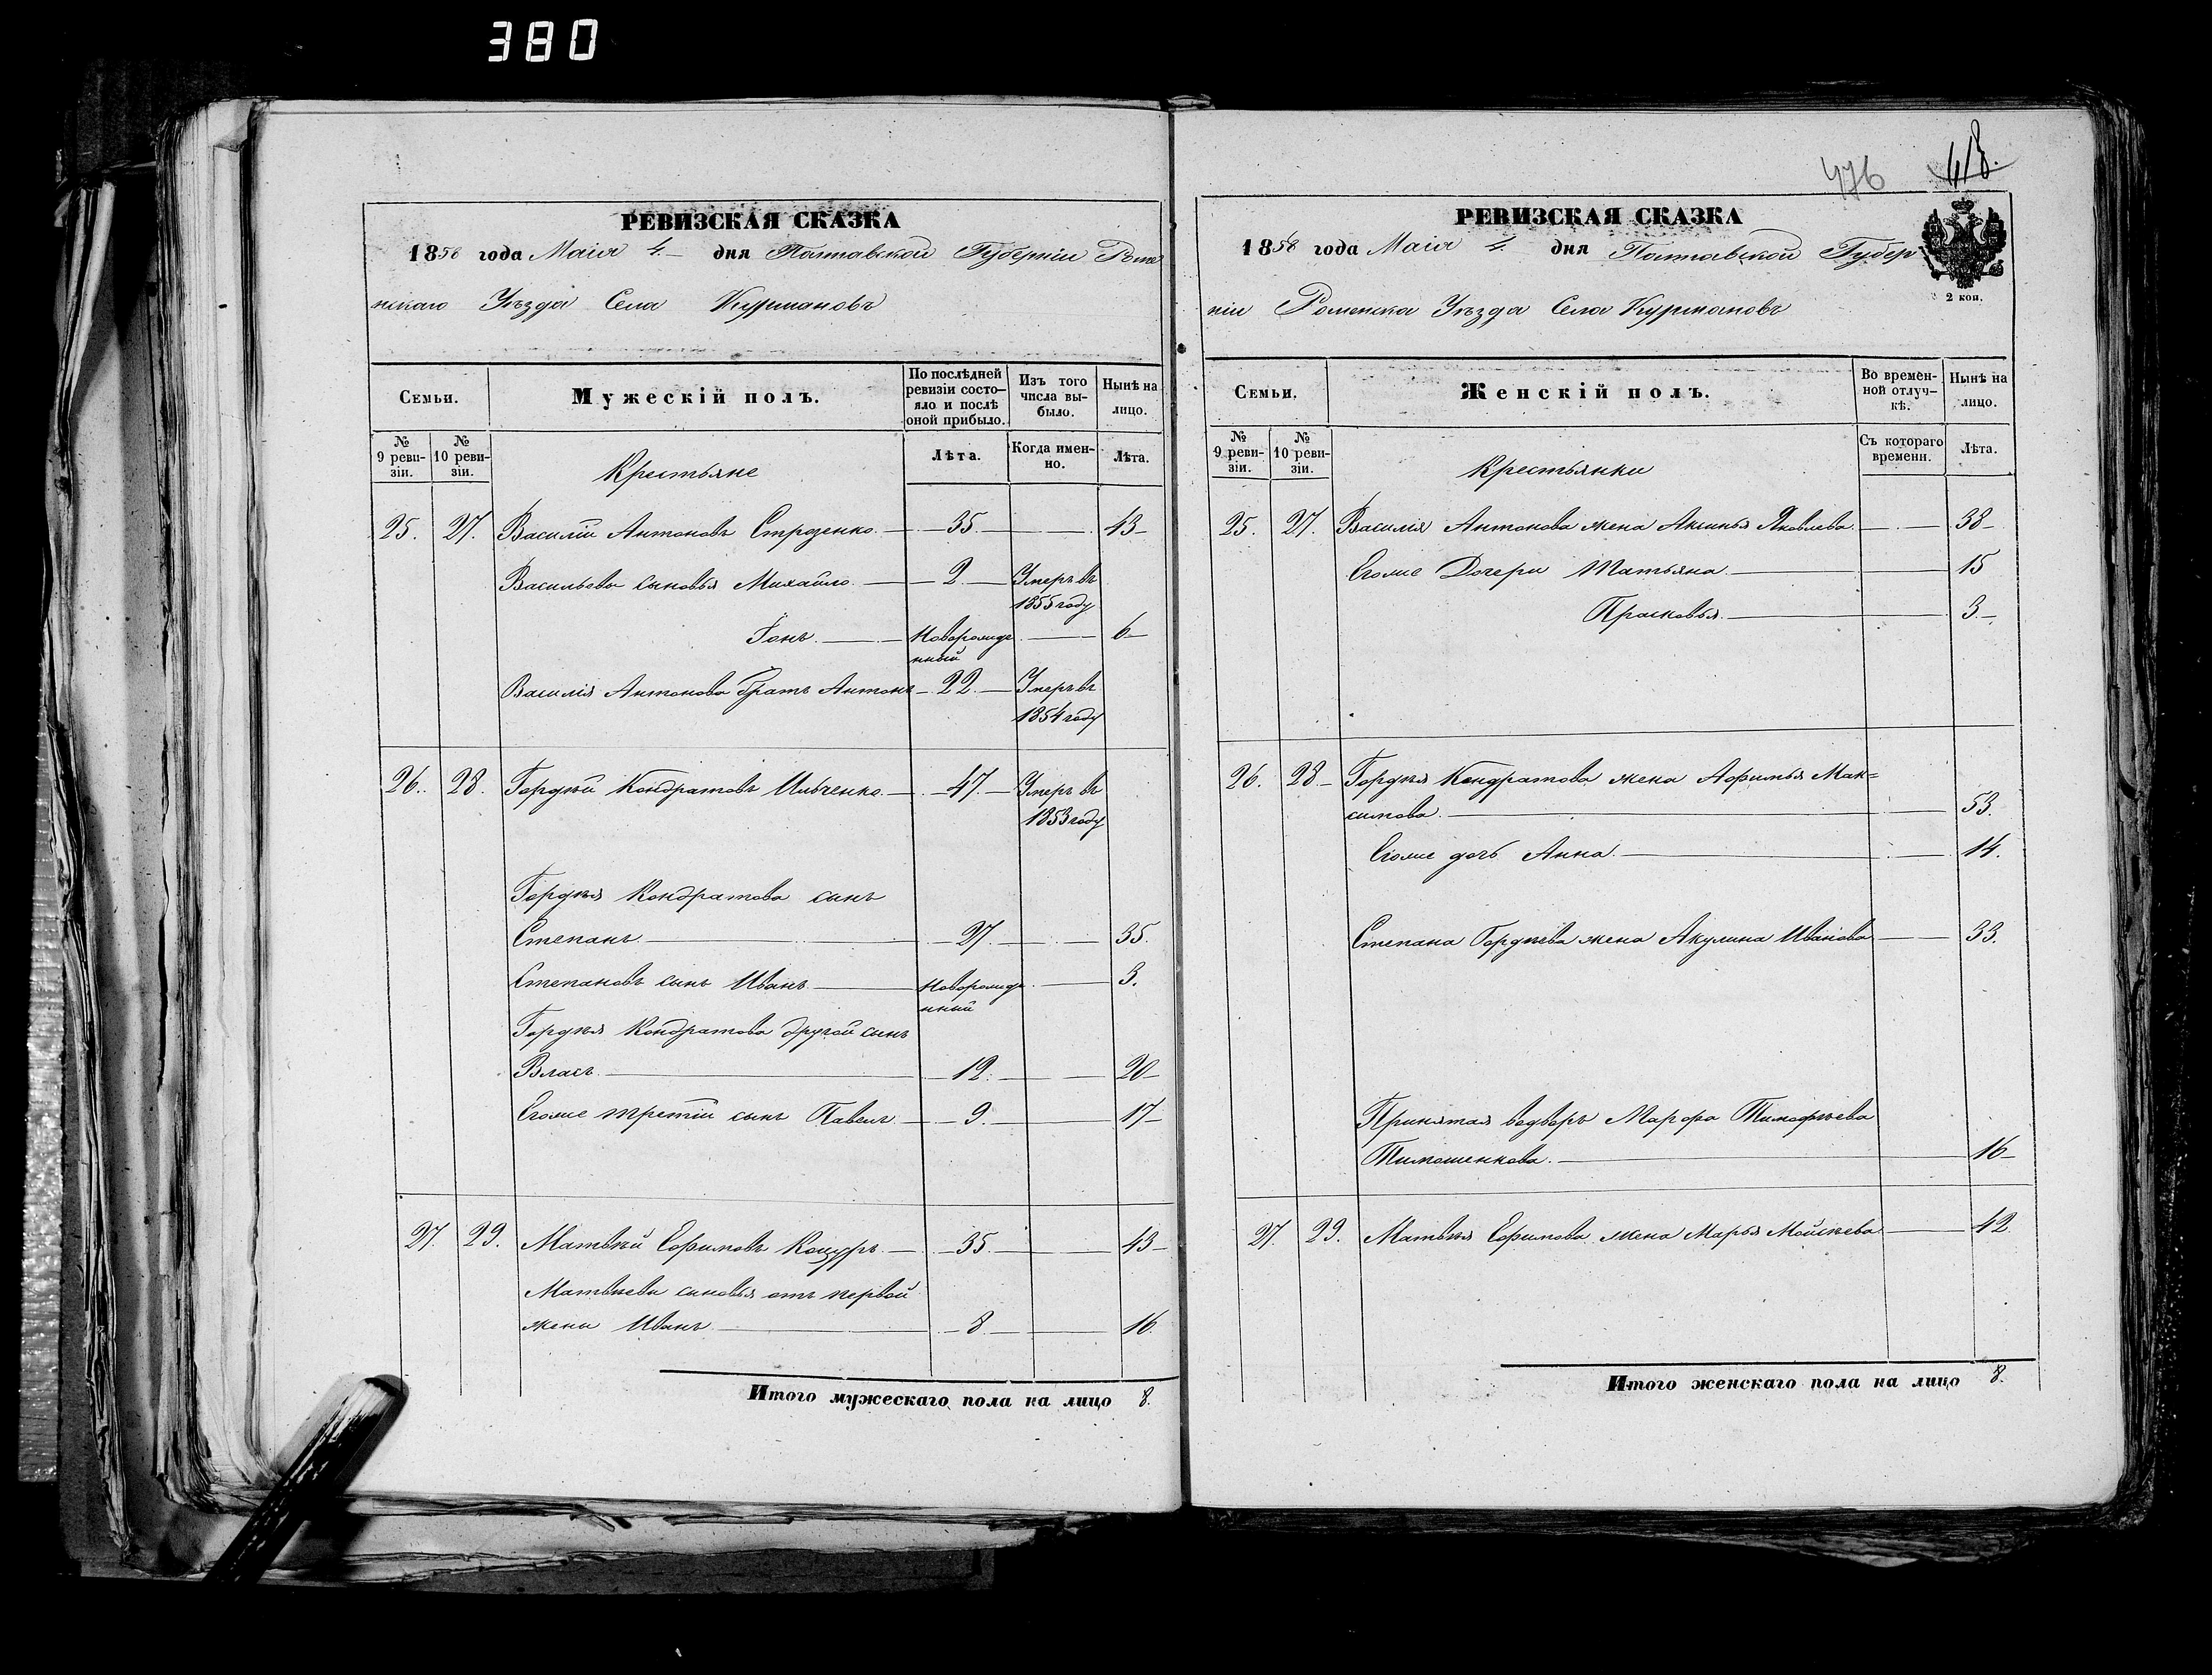 380
РЕВИЗСКАЯ СКАЗКА
1858 года Маія 4. дня Полтавской Губерніи Роме
нскаго Уѣзда Села Курмановъ
Семьи.
Мужескій полъ.
По послѣдней ревизіи состо-яло и послѣ оной прибыло.
Изъ того числа вы-было.
Нынѣ на лицо.
№ 9 реви-зіи.
№ 10 реви-зіи.
Крестьяне
Лѣта.
Когда имен-но.
Лѣта.
25. 27. Василій Антоновъ 35 43
Васильевы сыновья Михайло 2 Умеръ въ
1855 году
Іонъ Новорожде 6
нный
Василія Антонова братъ Антонъ 22 Умеръ въ
1854 году
26. 28. Гордѣй Кондратовъ Ильченко 47 Умеръ въ
1853 году
Гордѣя Кондратова сынъ
Степанъ 27 35.
Степановъ сынъ Иванъ Новорожде 3.
нный
Гордѣя Кондратова другой сынъ
Власъ 12. 20
Егоже третій сынъ Павелъ 9. 17
27. 29. Матвѣй Ефимовъ Коцуръ 35 43
Матвѣевы сыновья отъ первой
жены Иванъ 8 16
Итого мужескаго пола на лицо 8.
476 418.
РЕВИЗСКАЯ СКАЗКА
1858 года Маія 4. дня Полтавской Губер
2 коп.
ніи Роменска Уѣзда Села Курмановъ
Семьи.
Женскій полъ.
Во времен-ной отлуч-кѣ.
Нынѣ на лицо.
№ 9 реви-зіи.
№ 10 реви-зіи.
Крестьянки
Съ котораго времени.
Лѣта.
25. 27. Василія Антонова жена Аксинья Яковлева 38
Егоже Дочери Татьяна 15
Прасковья 3
26. 28 Гордѣя Кондратова жена Афимья Мак=
симова 53.
Егоже дочь Анна 14.
Степана Гордѣева жена Акулина Иванова 33.
Принятая водворъ Марфа Тимофѣева
Тимошенкова 16
27. 29. Матвѣя Ефимова жена Марья Мойсѣева 42
Итого женскаго пола на лицо 8.